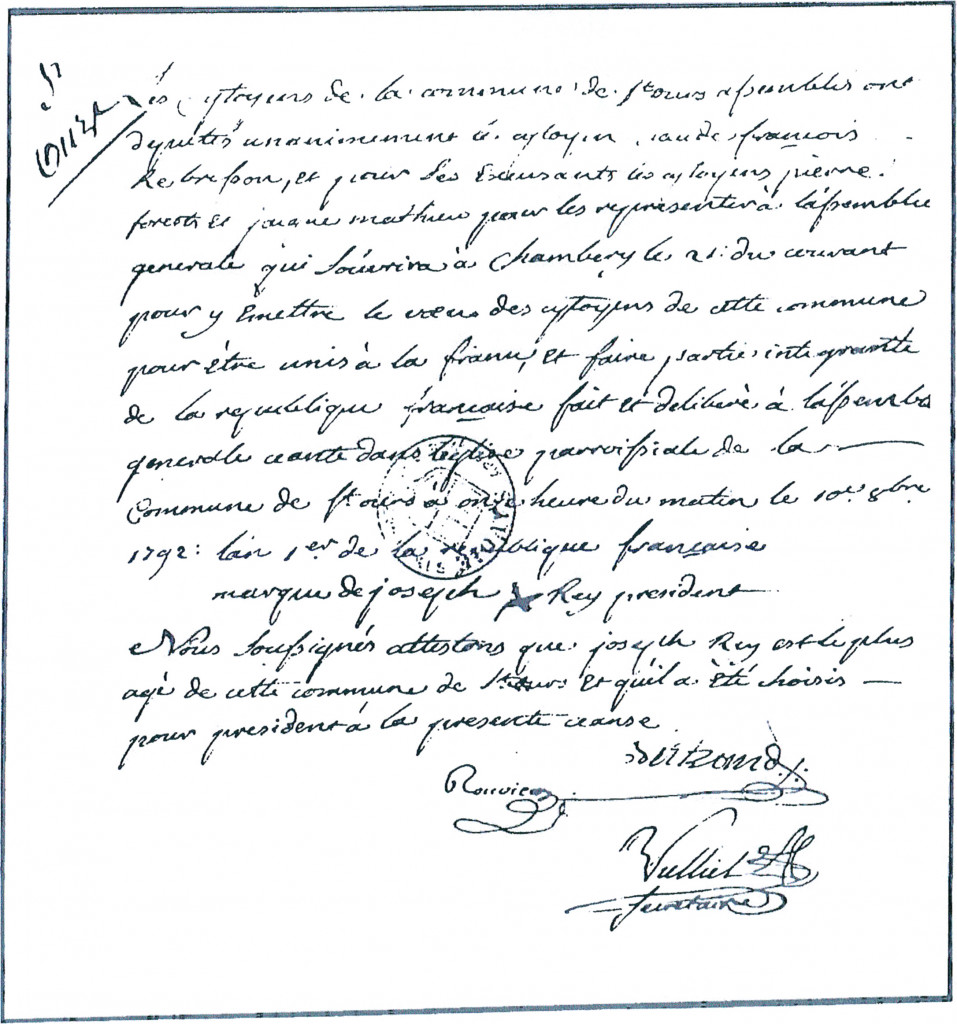 St
ours
Les cytoyens de la commune de St ours assemblés ont
deputés unanimement le cytoyen claude françois
Rebresson, et pour ses Excusants les cytoyens pierre
forest et jaque mathieu pour les representer à l'assemblée
generale qui s'ouvrira à Chambery le 21: du courant
pour y Emettre le vœu des cytoyens de cette commune
pour être unis à la france, et faire partie integrante
de la republique française fait et deliberé à l'assemblée
generale ceante dans l'eglise parroissiale de la
Commune de St ours à onze heure du matin le 10e 8bre
1792: l'an 1er de la republique française
marque de joseph Rey president
Nous soussignés attestons que joseph Rey est le plus
agé de cette commune de St ours et qu'il a été choisis
pour president à la presente ceanse
Bertrand
Rouvier
Vulliet
secretaire